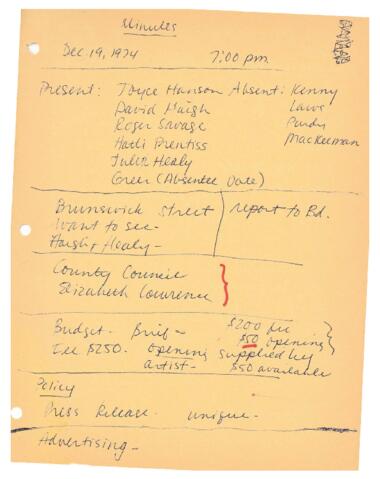 Minutes
Dec 19, 1974 7:00 pm
Present: Joyce Hanson Absent: Kenny
David Haigh Laws
Roger Savage Purdy
Hatti Prentiss MacKeeman
Julia Healy
Greer (Absentee Vote)
Brunswick Street report to Bd.
Want to see -
Haigh & Healy -
County Council
Elizabeth Lawrence
Budget - Brief - $200 fee
$50 opening
Fee $250. Opening supplied by
artist - $50 available
Policy
Press Release - unique -
Advertising -